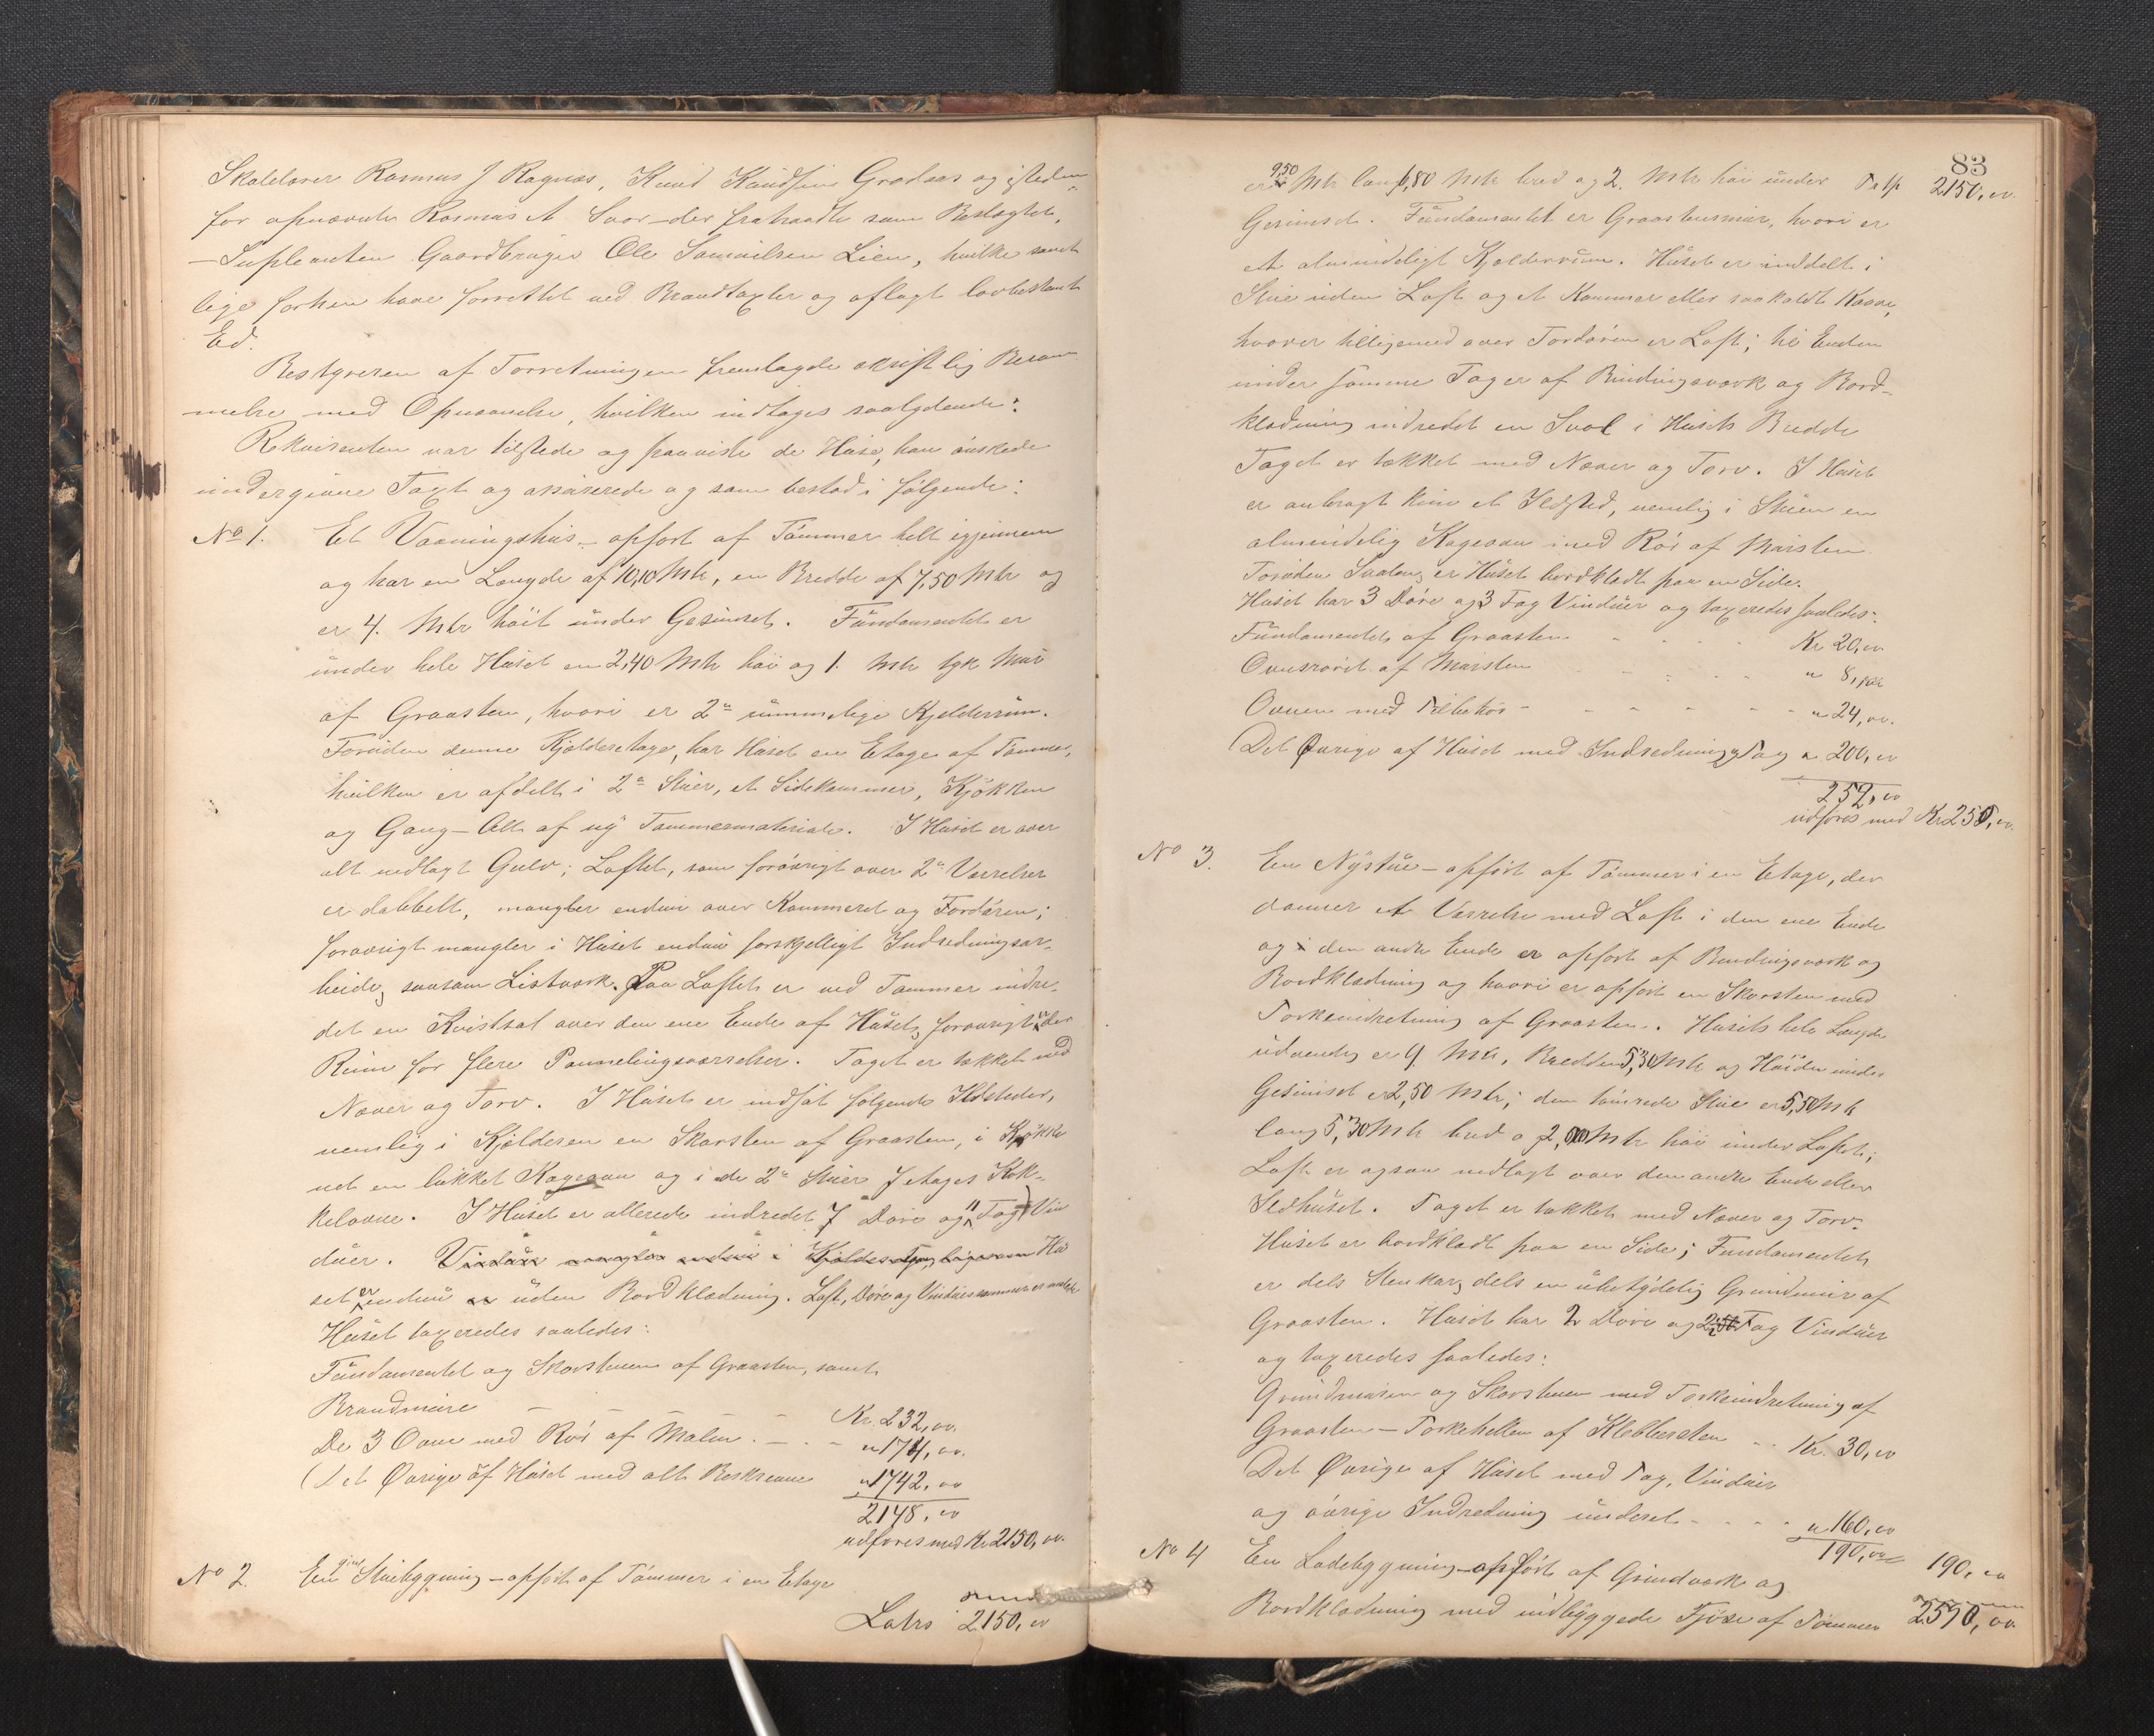 Skatelover Rasmus J Ragnæs, Knud Knudsen Grodaas og isteden-
for opnævnte Rasmus A Svor - der frahaadte som Beslægtet,
- Supleanten Gaardbruger Ole Samuelsen Lien, hvilke samt
lige forhen have forrettet ved Brandtaxter og aflagt lovbestemt
Ed.
Bestyreren af Forretningen fremlagde skriftlig Beram
melse med Opnævnelse, hvilken indtages saalydende:
Rekvirenten var tilstede og paaviste de Huse, han ønskede
undergivne Taxt og assurerede og som bestod i følgende:
No 1. Et Vaaningshus - opført af Tømmer helt igjennem
og har en Længde af 10,10 Mtr, en Bredde af 7,50 Mtr og
er 4. Mtr høit under Gesimset. Fundamentet er
under hele Huset en 2,40 Mtr høi og 1. Mtr tyk Mur
af Graasten, hvori er 2de rummelige Kjelderrum.
Foruden denne Kjælderetage, har Huset en Etage af Tømmer,
hvilken er afdelt i 2de Stuer, et Sidekammer, Kjøkken
og Gang - Alt af ny Tømmermateriale. I Huset er over
alt nedlagt Gulv; Loftet, som forøvrigt over 2de Værrelser
er dobbelt, mangler endnu over Kammeret og Fordøren;
forøvrigt mangler i Huset endnu forskjelligt Indredningsar-
beide, saasom Listværk. Paa Loftet er ved Tømmer indre-
det en Kvistsal over den ene Ende af Huset, forøvrigt er der
Rum for flere Pannelingsværrelser. Taget er tækket med
Næver og Torv. I Huset er indsat følgende Ildsteder,
nemlig i Kjælderen en Skorsten af Graasten, i Kjøkke
net en lukket Kogeovn og i de 2de Stuer J etages Kok-
kelovne. I Huset er allerede indredet 7 Døre og 11 Fag Vin
duer. Vinduer mangler endnu i Kjælderetagen, ligesom Hu
set er endnu uden Bordklædning. Loft, Døre og Vinduesrammer er malede
Huset taxeredes saaledes:
Fundamentet og Skorstenen af Graasten, samt
Brandmure - - - - - Kr. 232,00.
De 3 Ovne med Rør af Malm. - - - " 174,00.
Det Øvrige af Huset med alt Beskrevne " 1742,00
2148,00
udføres med Kr 2150,00.
No 2. En Stuebygning - opført af Tømmer i en Etage
Latus 2150,00
83
er 9,50 Mtr lang 6,80 Mtr bred og 2. Mtr høi under Trsp 2150,00.
Gesimset. Fundamentet er Graastensmur, hvori er
et almindeligt Kjælderrum. Huset er inddelt i
Stue uden Loft og et Kammer eller saakaldt Kove,
hvorover tilligemed over Fordøren er Loft; til Enden
under samme Tag er af Bindingsværk og Bord-
klædning indredet en Sval i Husets Bredde
Taget er tækket med Næver og Torv. I Huset
er anbragt kun et Ildsted, nemlig i Stuen en
almindelig Kogeovn med Rør af Mursten
Foruden Svalen, er Huset bordklædt paa en Side.
Huset har 3 Døre og 3 Fag Vinduer og taxeredes saaledes:
Fundamentet af Graasten - - - - Kr 20,00
Ovnsrøret af Mursten - - - - - " 8,00
Ovnen med Tilbehør - - - - - - " 24,00.
Det Øvrige af Huset med Indredning og Tag " 200,00
252,00
udføres med Kr 250,00.
No 3. En Nystue - opført af Tømmer i en Etage, der
danner et Værrelse med Loft i den ene Ende
og i den andre Ende er opført af Bindingsværk og
Bordklædning og hvori er opført en Skorsten med
Tørkeindretning af Graasten. Husets hele Længde
udvendig er 9 Mtr, Bredden 5,30 Mtr og Høiden under
Gesimset er 2,50 Mtr; den tømrede Stue er 5,50 Mtr
lang 5,30 Mtr bred og 2,00 Mtr høi under Loftet;
Loft er ogsaa nedlagt over den andre Ende eller
Ildhuset. Taget er tækket med Næver og Torv.
Huset er bordklædt paa en Side; Fundamentet
er dels Stenkar, dels en ubetydelig Grundmur af
Graasten. Huset har 2 Døre og 2 Fag Vinduer
og taxeredes saaledes:
Grundmuren og Skorstenen med Tørkeindretning af
Graasten - Tørkehellen af Klebbersten - - Kr. 30,00
Det Øvrige af Huset med Tag, Vinduer
og øvrige Indredning underet - - - - " 160,00
190,00 190,00
No 4 En Ladebygning - opført af Grindværk og
Bordklædning med indbyggede Fjøse af Tømmer 2590,00.